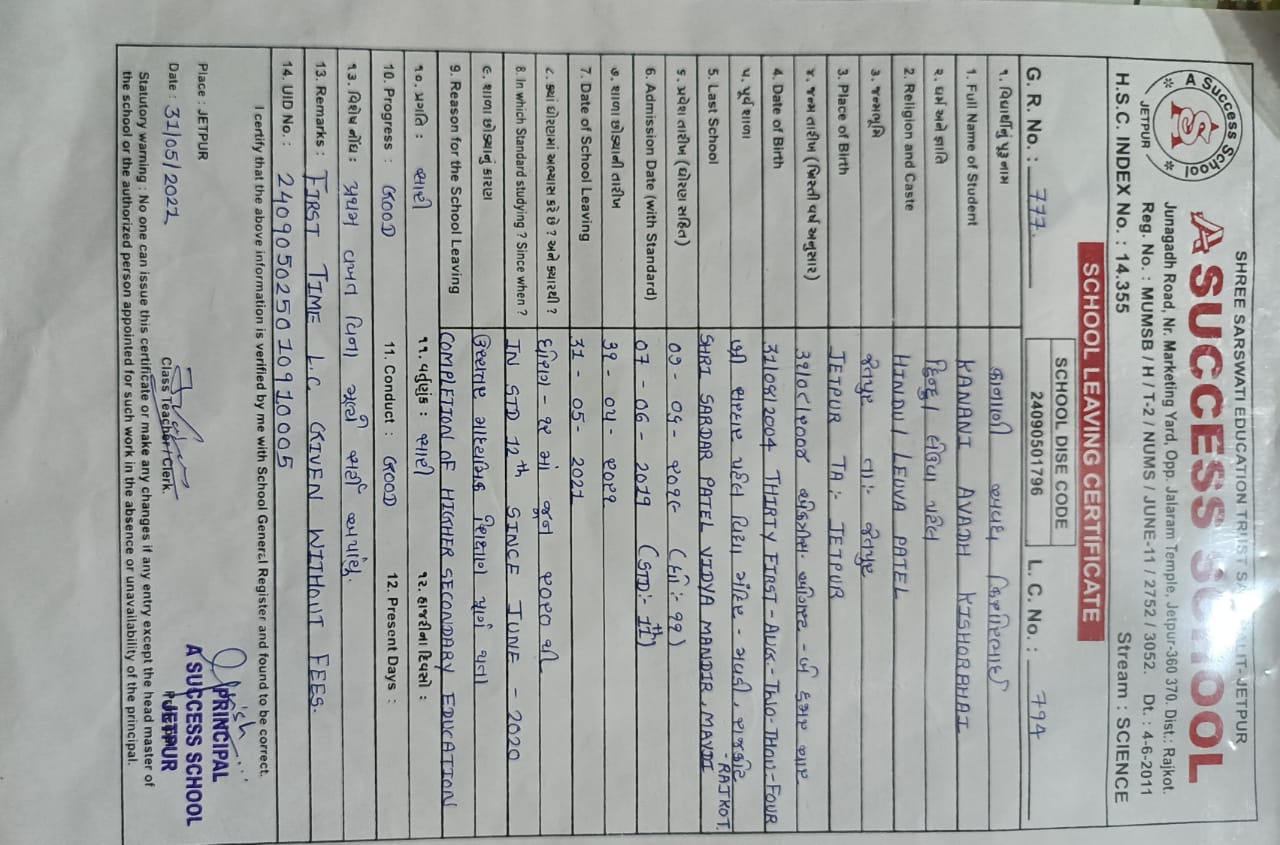 SHREE SARSWATI EDUCATION TRUST LIT-JETPUR
A Success School
JETPUR
A SUCCESS SCHOOL
Junagadh Road, Nr. Marketing Yard, Opp. Jalaram Temple, Jetpur-360 370. Dist.: Rajkot.
Reg. No. : MUMSB / H / T-2 / NUMS / JUNE-11 / 2752 / 3052. Dt. : 4-6-2011
H.S.C. INDEX No. : 14.355 Stream : SCIENCE
SCHOOL LEAVING CERTIFICATE
SCHOOL DISE CODE
G. R. No. : 777. 24090501796 L. C. No. : 794
૧. વિદ્યાર્થીનું પૂરૂ નામ કાનાણી અવધ કિશોરભાઈ
1. Full Name of Student KANANI AVADH KISHORBHAI
૨. ધર્મ અને જ્ઞાતિ હિન્દુ / લેઉવા પટેલ
2. Religion and Caste HINDU / LEUVA PATEL
૩. જન્મભૂમિ જેતપુર તા:- જેતપુર
3. Place of Birth JETPUR TA:- JETPUR
૪. જન્મ તારીખ (ખ્રિસ્તી વર્ષ અનુસાર) ૩૧/૦૮/૨૦૦૪ એકત્રીસ- ઓગસ્ટ - બે હજાર ચાર
4. Date of Birth 31/08/2004 THIRTY FIRST-AUG.-TWO-THOU-FOUR
૫. પૂર્વ શાળા શ્રી સરદાર પટેલ વિદ્યા મંદિર - મવડી, રાજકોટ
5. Last School SHRI SARDAR PATEL VIDYA MANDIR, MAVDI - RAJKOT.
૬. પ્રવેશ તારીખ (ધોરણ સહિત) ૦૭- ૦૬- ૨૦૧૯ (ધો:- ૧૧)
6. Admission Date (with Standard) 07 - 06 - 2019 (STD:- 11th)
૭. શાળા છોડ્યાની તારીખ ૩૧- ૦૫- ૨૦૨૧
7. Date of School Leaving 31 - 05- 2021
૮. ક્યાં ધોરણમાં અભ્યાસ કરે છે ? અને ક્યારથી ? ધોરણ - ૧૨ માં જૂન ૨૦૨૦ થી
8. In which Standard studying ? Since when ? IN STD 12th SINCE JUNE - 2020
૯. શાળા છોડ્યાનું કારણ ઉચ્ચતર માધ્યમિક શિક્ષણ પૂર્ણ થતા
9. Reason for the School Leaving COMPLETION OF HIGHER SECONDARY EDUCATION
૧૦. પ્રગતિ : સારી ૧૧. વર્તુણુંક : સારી ૧૨. હાજરીના દિવસો :
10. Progress : GOOD 11. Conduct : GOOD 12. Present Days :
૧૩. વિશેષ નોંધ: પ્રથમ વખત વિના મૂલ્યે સર્ટી અપાયું.
13. Remarks : FIRST TIME L.C GIVEN WITHOUT FEES.
14. UID No. : 240905025010910005
I certify that the above information is verified by me with School General Register and found to be correct.
PRINCIPAL
Place : JETPUR A SUCCESS SCHOOL
Date : 31/05/2021 Class Teacher / Clerk. JETPUR
Statutory warning : No one can issue this certificate or make any changes if any entry except the head master of
the school or the authorized person appointed for such work in the absence or unavailability of the principal.